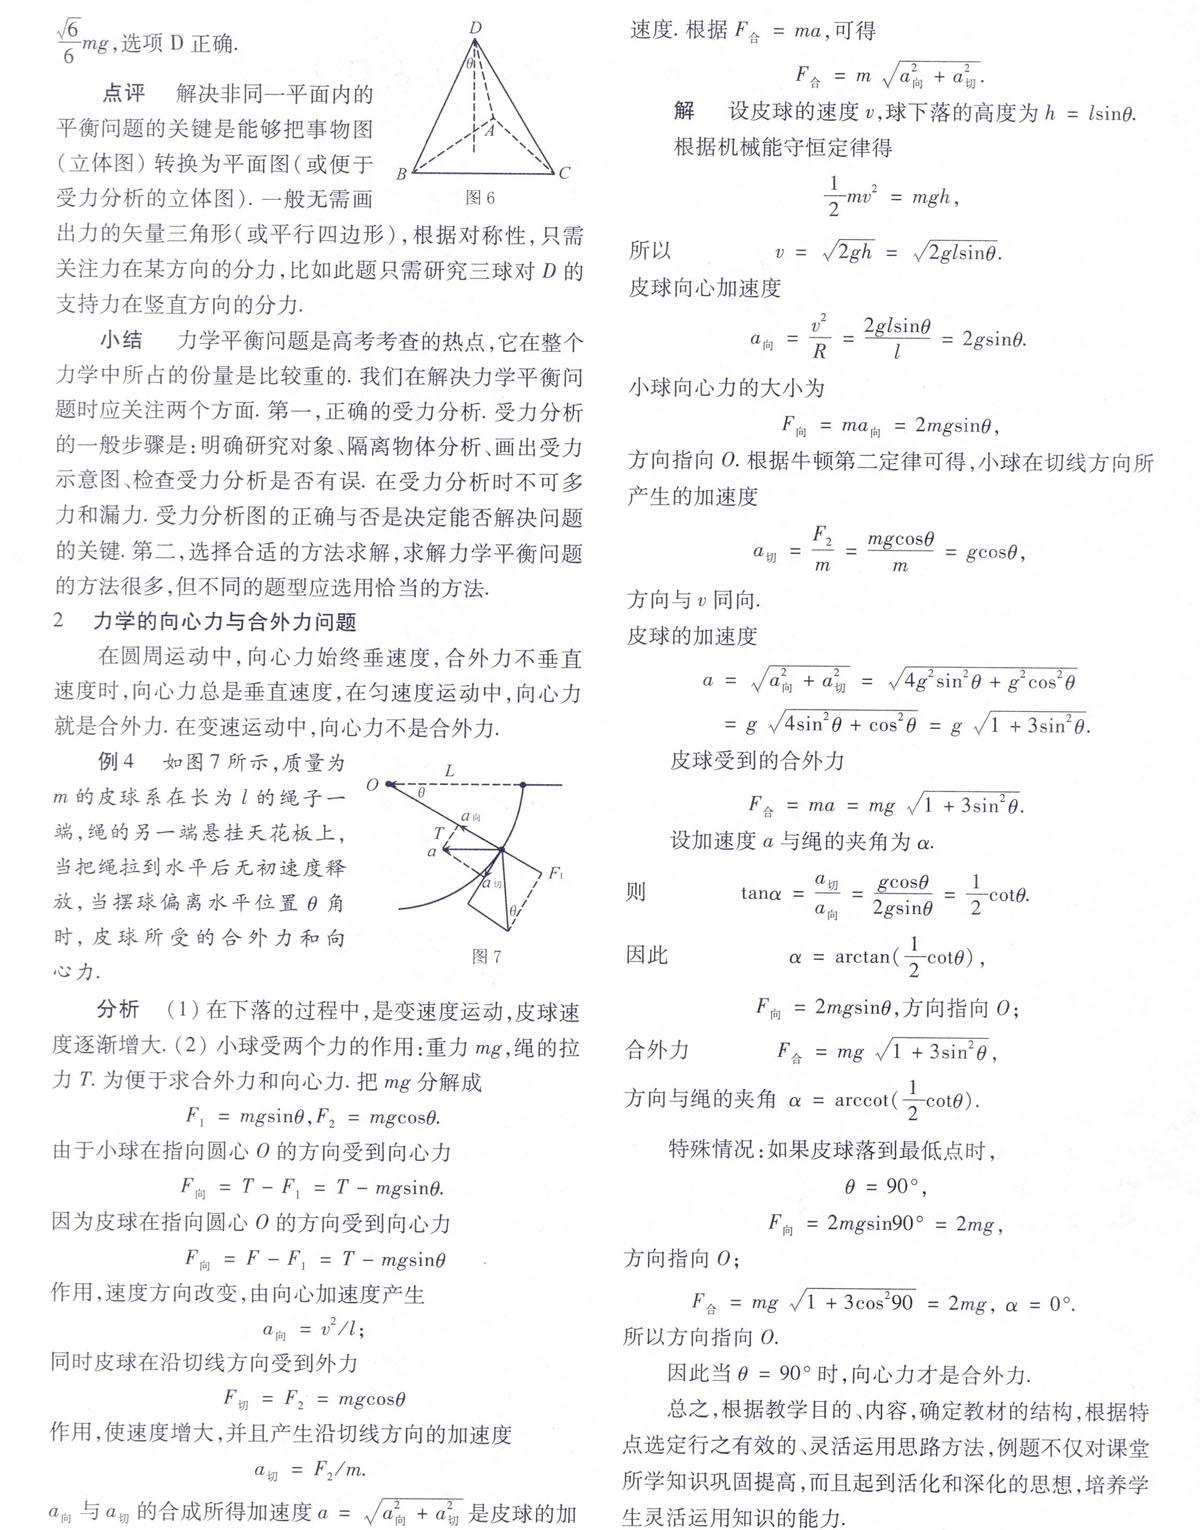 √6/6 mg,选项 D 正确.
点评 解决非同一平面内的
平衡问题的关键是能够把事物图
(立体图) 转换为平面图(或便于
受力分析的立体图). 一般无需画
D
θ
A
B
C
图 6
出力的矢量三角形(或平行四边形),根据对称性,只需
关注力在某方向的分力,比如此题只需研究三球对 D 的
支持力在竖直方向的分力.
小结 力学平衡问题是高考考查的热点,它在整个
力学中所占的份量是比较重的. 我们在解决力学平衡问
题时应关注两个方面. 第一,正确的受力分析. 受力分析
的一般步骤是:明确研究对象、隔离物体分析、画出受力
示意图、检查受力分析是否有误. 在受力分析时不可多
力和漏力. 受力分析图的正确与否是决定能否解决问题
的关键. 第二,选择合适的方法求解,求解力学平衡问题
的方法很多,但不同的题型应选用恰当的方法.
2 力学的向心力与合外力问题
在圆周运动中,向心力始终垂速度,合外力不垂直
速度时,向心力总是垂直速度,在匀速度运动中,向心力
就是合外力. 在变速运动中,向心力不是合外力.
例 4 如图 7 所示,质量为
m 的皮球系在长为 l 的绳子一
端,绳的另一端悬挂天花板上,
当把绳拉到水平后无初速度释
放,当摆球偏离水平位置 θ 角
时,皮球所受的合外力和向
心力.
O
L
θ
a向
T
a
a切
F₁
θ
图 7
分析 (1) 在下落的过程中,是变速度运动,皮球速
度逐渐增大. (2) 小球受两个力的作用:重力 mg,绳的拉
力 T. 为便于求合外力和向心力. 把 mg 分解成
F₁ = mgsinθ,F₂ = mgcosθ.
由于小球在指向圆心 O 的方向受到向心力
F向 = T − F₁ = T − mgsinθ.
因为皮球在指向圆心 O 的方向受到向心力
F向 = F − F₁ = T − mgsinθ
作用,速度方向改变,由向心加速度产生
a向 = v²/l;
同时皮球在沿切线方向受到外力
F切 = F₂ = mgcosθ
作用,使速度增大,并且产生沿切线方向的加速度
a切 = F₂/m.
a向 与 a切 的合成所得加速度 a = √(a²向 + a²切) 是皮球的加
速度. 根据 F合 = ma,可得
F合 = m √(a²向 + a²切).
解 设皮球的速度 v,球下落的高度为 h = lsinθ.
根据机械能守恒定律得
1/2 mv² = mgh,
所以 v = √(2gh) = √(2glsinθ).
皮球向心加速度
a向 = v²/R = 2glsinθ/l = 2gsinθ.
小球向心力的大小为
F向 = ma向 = 2mgsinθ,
方向指向 O. 根据牛顿第二定律可得,小球在切线方向所
产生的加速度
a切 = F₂/m = mgcosθ/m = gcosθ,
方向与 v 同向.
皮球的加速度
a = √(a²向 + a²切) = √(4g²sin²θ + g²cos²θ)
= g √(4sin²θ + cos²θ) = g √(1 + 3sin²θ).
皮球受到的合外力
F合 = ma = mg √(1 + 3sin²θ).
设加速度 a 与绳的夹角为 α.
则 tanα = a切/a向 = gcosθ/2gsinθ = 1/2 cotθ.
因此 α = arctan(1/2 cotθ),
F向 = 2mgsinθ,方向指向 O;
合外力 F合 = mg √(1 + 3sin²θ),
方向与绳的夹角 α = arccot(1/2 cotθ).
特殊情况:如果皮球落到最低点时,
θ = 90°,
F向 = 2mgsin90° = 2mg,
方向指向 O;
F合 = mg √(1 + 3cos²90) = 2mg, α = 0°.
所以方向指向 O.
因此当 θ = 90° 时,向心力才是合外力.
总之,根据教学目的、内容,确定教材的结构,根据特
点选定行之有效的、灵活运用思路方法,例题不仅对课堂
所学知识巩固提高,而且起到活化和深化的思想,培养学
生灵活运用知识的能力.